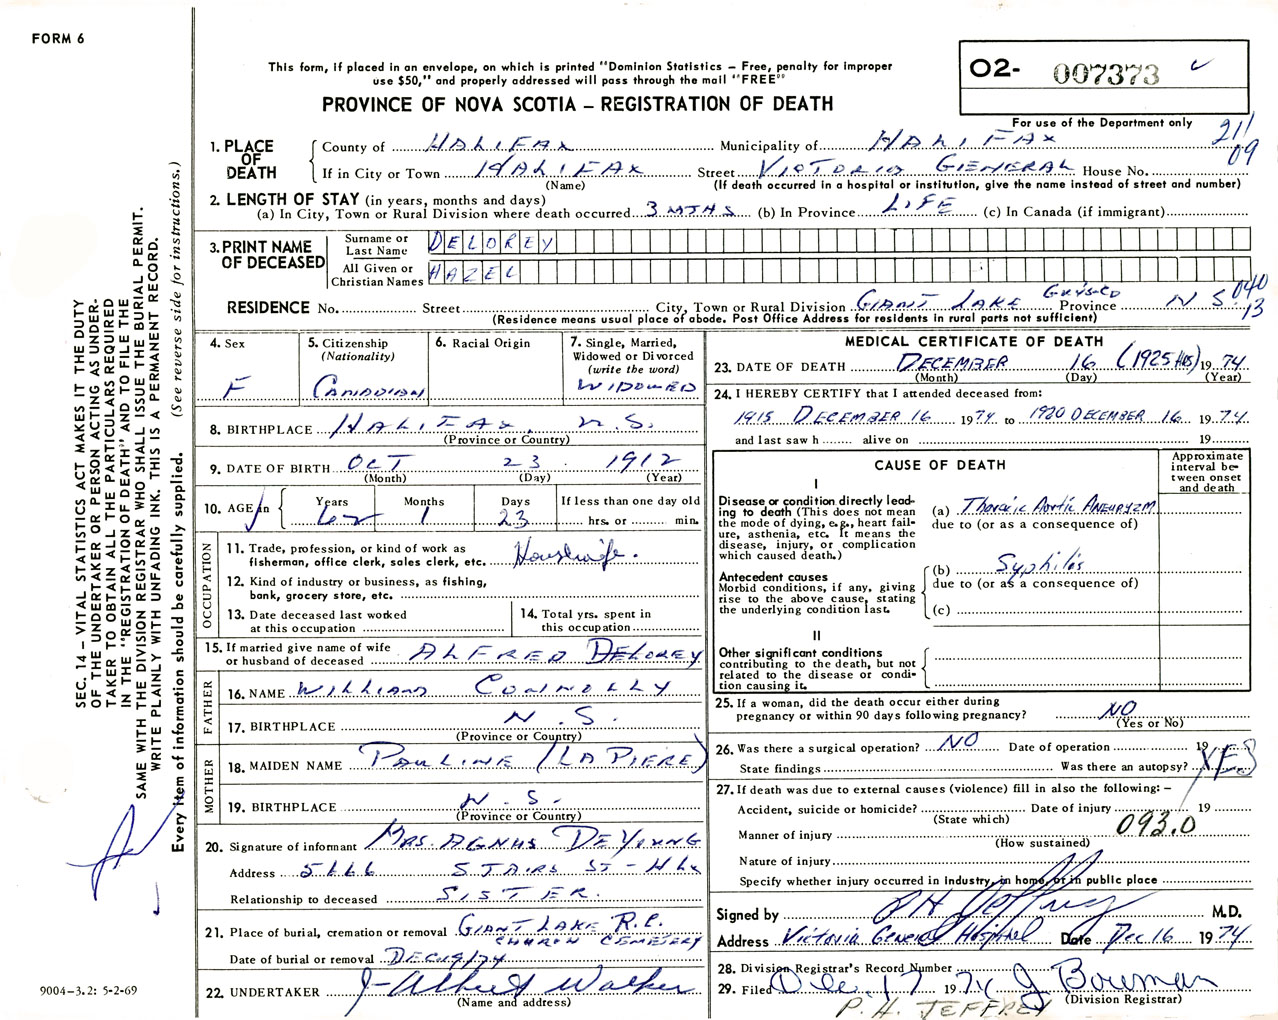 FORM 6
This form, if placed in an envelope, on which is printed "Dominion Statistics – Free, penalty for improper
use $50," and properly addressed will pass through the mail "FREE"
PROVINCE OF NOVA SCOTIA – REGISTRATION OF DEATH
O2- 007373
For use of the Department only
211
09
1. PLACE OF DEATH
County of HALIFAX Municipality of HALIFAX
If in City or Town HALIFAX Street VICTORIA GENERAL House No.
(Name) (If death occurred in a hospital or institution, give the name instead of street and number)
2. LENGTH OF STAY (in years, months and days)
(a) In City, Town or Rural Division where death occurred 3 MTHS (b) In Province LIFE (c) In Canada (if immigrant)
3. PRINT NAME OF DECEASED
Surname or Last Name DELOREY
All Given or Christian Names HAZEL
RESIDENCE No. Street City, Town or Rural Division GIANT LAKE GUYSCO Province N S. 040
13
(Residence means usual place of abode. Post Office Address for residents in rural parts not sufficient)
4. Sex F
5. Citizenship (Nationality) CANADIAN
6. Racial Origin
7. Single, Married, Widowed or Divorced (write the word) WIDOWED
8. BIRTHPLACE HALIFAX, N.S.
(Province or Country)
9. DATE OF BIRTH OCT 23 1912
(Month) (Day) (Year)
10. AGE in Years 62 Months 1 Days 23 If less than one day old hrs. or min.
OCCUPATION
11. Trade, profession, or kind of work as fisherman, office clerk, sales clerk, etc. Housewife.
12. Kind of industry or business, as fishing, bank, grocery store, etc.
13. Date deceased last worked at this occupation
14. Total yrs. spent in this occupation
15. If married give name of wife or husband of deceased ALFRED DELOREY
FATHER
16. NAME WILLIAM CONNOLLY
17. BIRTHPLACE N.S.
(Province or Country)
MOTHER
18. MAIDEN NAME PAULINE (LAPIERE)
19. BIRTHPLACE N.S.
(Province or Country)
20. Signature of informant MRS. AGNUS DEYOUNG
Address 5666 STAIRS ST – HLX
Relationship to deceased SISTER.
21. Place of burial, cremation or removal GIANT LAKE R.C.
CHURCH CEMETERY
Date of burial or removal DEC 19/74
22. UNDERTAKER J Albert Walker
(Name and address)
MEDICAL CERTIFICATE OF DEATH
23. DATE OF DEATH DECEMBER 16 (1925 HRS) 1974
(Month) (Day) (Year)
24. I HEREBY CERTIFY that I attended deceased from:
1915 DECEMBER 16 1974 to 1920 DECEMBER 16 1974
and last saw h alive on 19
CAUSE OF DEATH
Approximate interval between onset and death
I
Disease or condition directly leading to death (This does not
mean the mode of dying, e.g., heart failure, asthenia, etc. It means the
disease, injury, or complication
which caused death.)
(a) Thoracic Aortic ANEURYZM
due to (or as a consequence of)
Antecedent causes
Morbid conditions, if any, giving
rise to the above cause, stating
the underlying condition last.
(b) Syphilis
due to (or as a consequence of)
(c)
II
Other significant conditions
contributing to the death, but not
related to the disease or condition causing it.
25. If a woman, did the death occur either during
pregnancy or within 90 days following pregnancy? NO
(Yes or No)
26. Was there a surgical operation? NO Date of operation 19
State findings Was there an autopsy? YES
27. If death was due to external causes (violence) fill in also the following: –
Accident, suicide or homicide? Date of injury 19
(State which)
093.0
Manner of injury
(How sustained)
Nature of injury
Specify whether injury occurred in industry, in home, or in public place
Signed by P H Jeffrey M.D.
Address Victoria General Hospital Date Dec 16 1974
28. Division Registrar's Record Number
29. Filed Dec. 17 1974 J Bowman
(Division Registrar)
P. H. JEFFREY
SEC. 14 – VITAL STATISTICS ACT MAKES IT THE DUTY
OF THE UNDERTAKER OR PERSON ACTING AS UNDER-
TAKER TO OBTAIN ALL THE PARTICULARS REQUIRED
IN THE "REGISTRATION OF DEATH" AND TO FILE THE
SAME WITH THE DIVISION REGISTRAR WHO SHALL ISSUE THE BURIAL PERMIT.
WRITE PLAINLY WITH UNFADING INK. THIS IS A PERMANENT RECORD.
Every item of information should be carefully supplied. (See reverse side for instructions.)
9004-3.2: 5-2-69